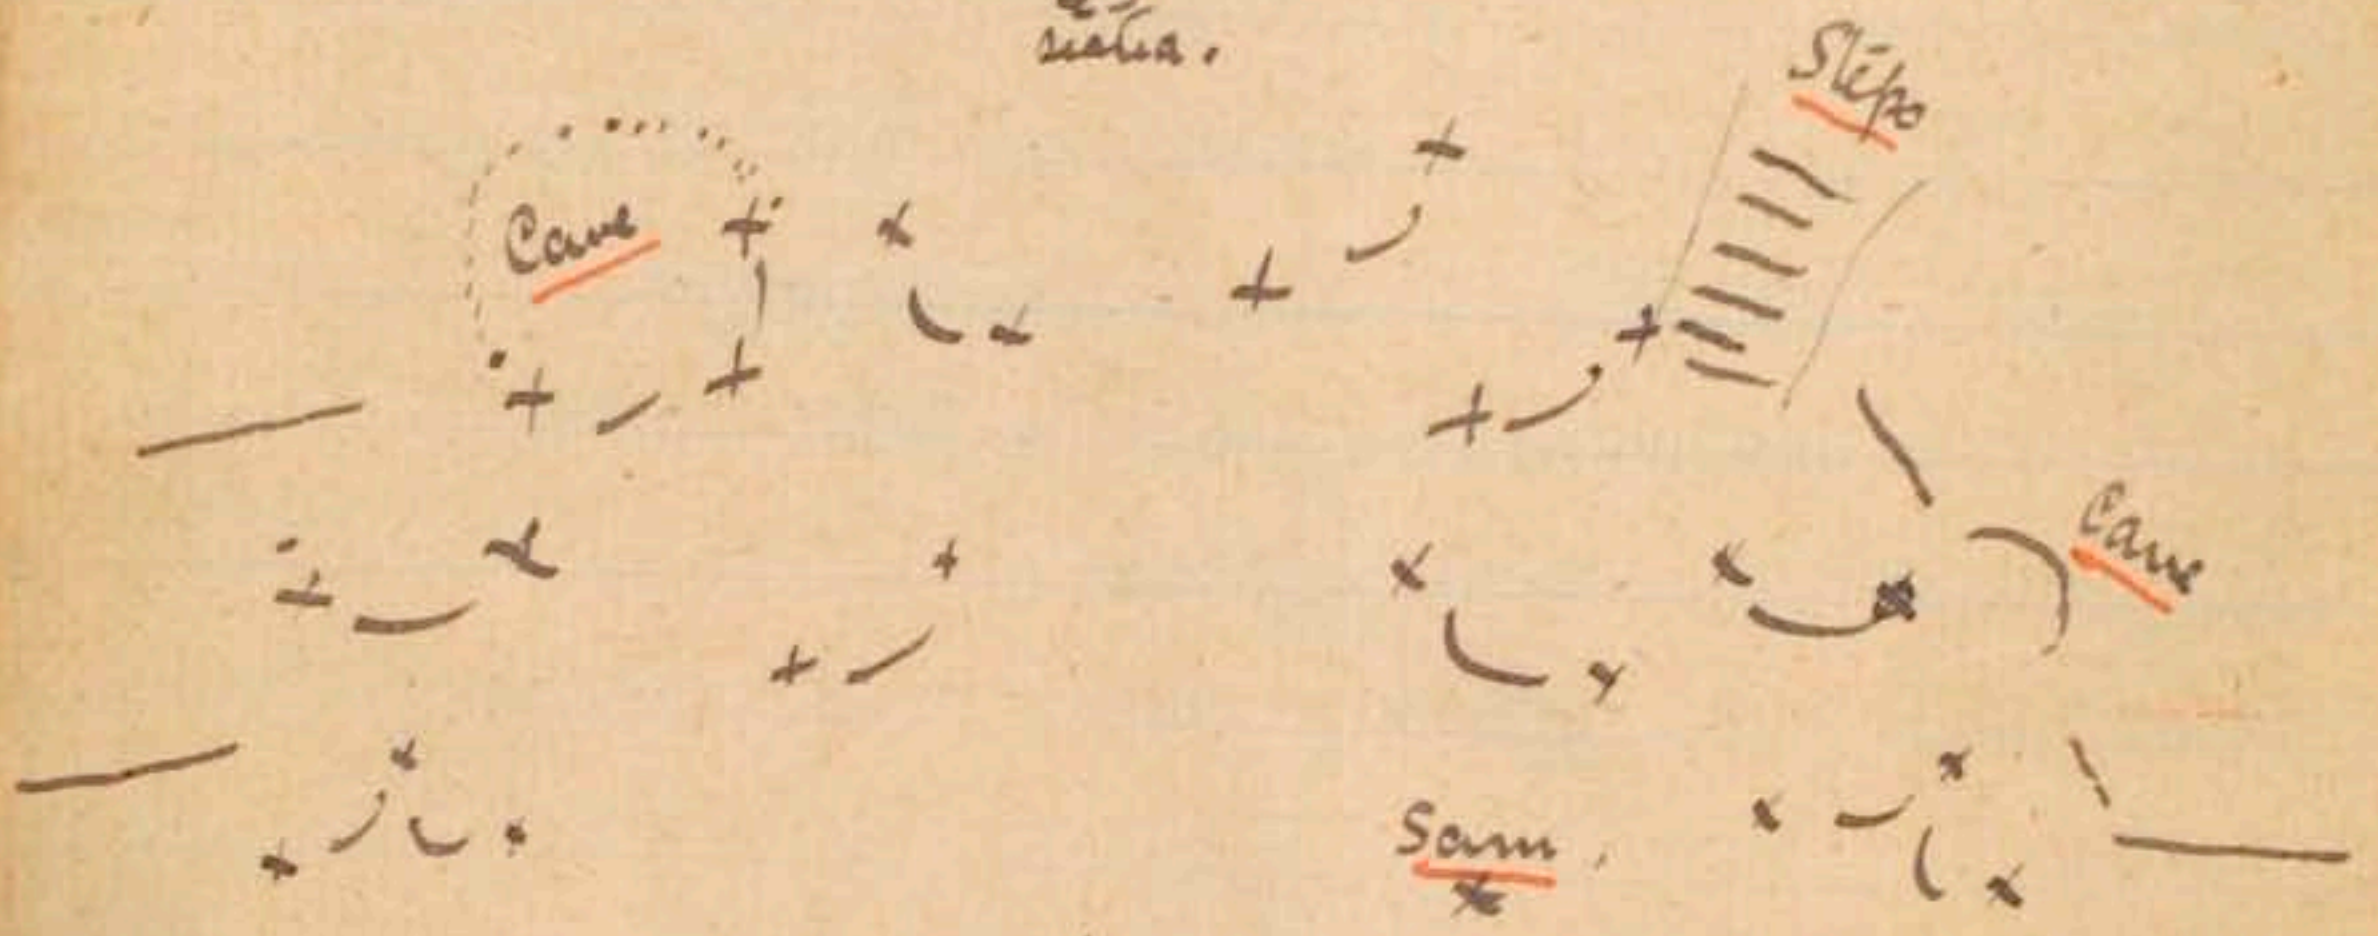 Steps
Cave
Cave
Sam